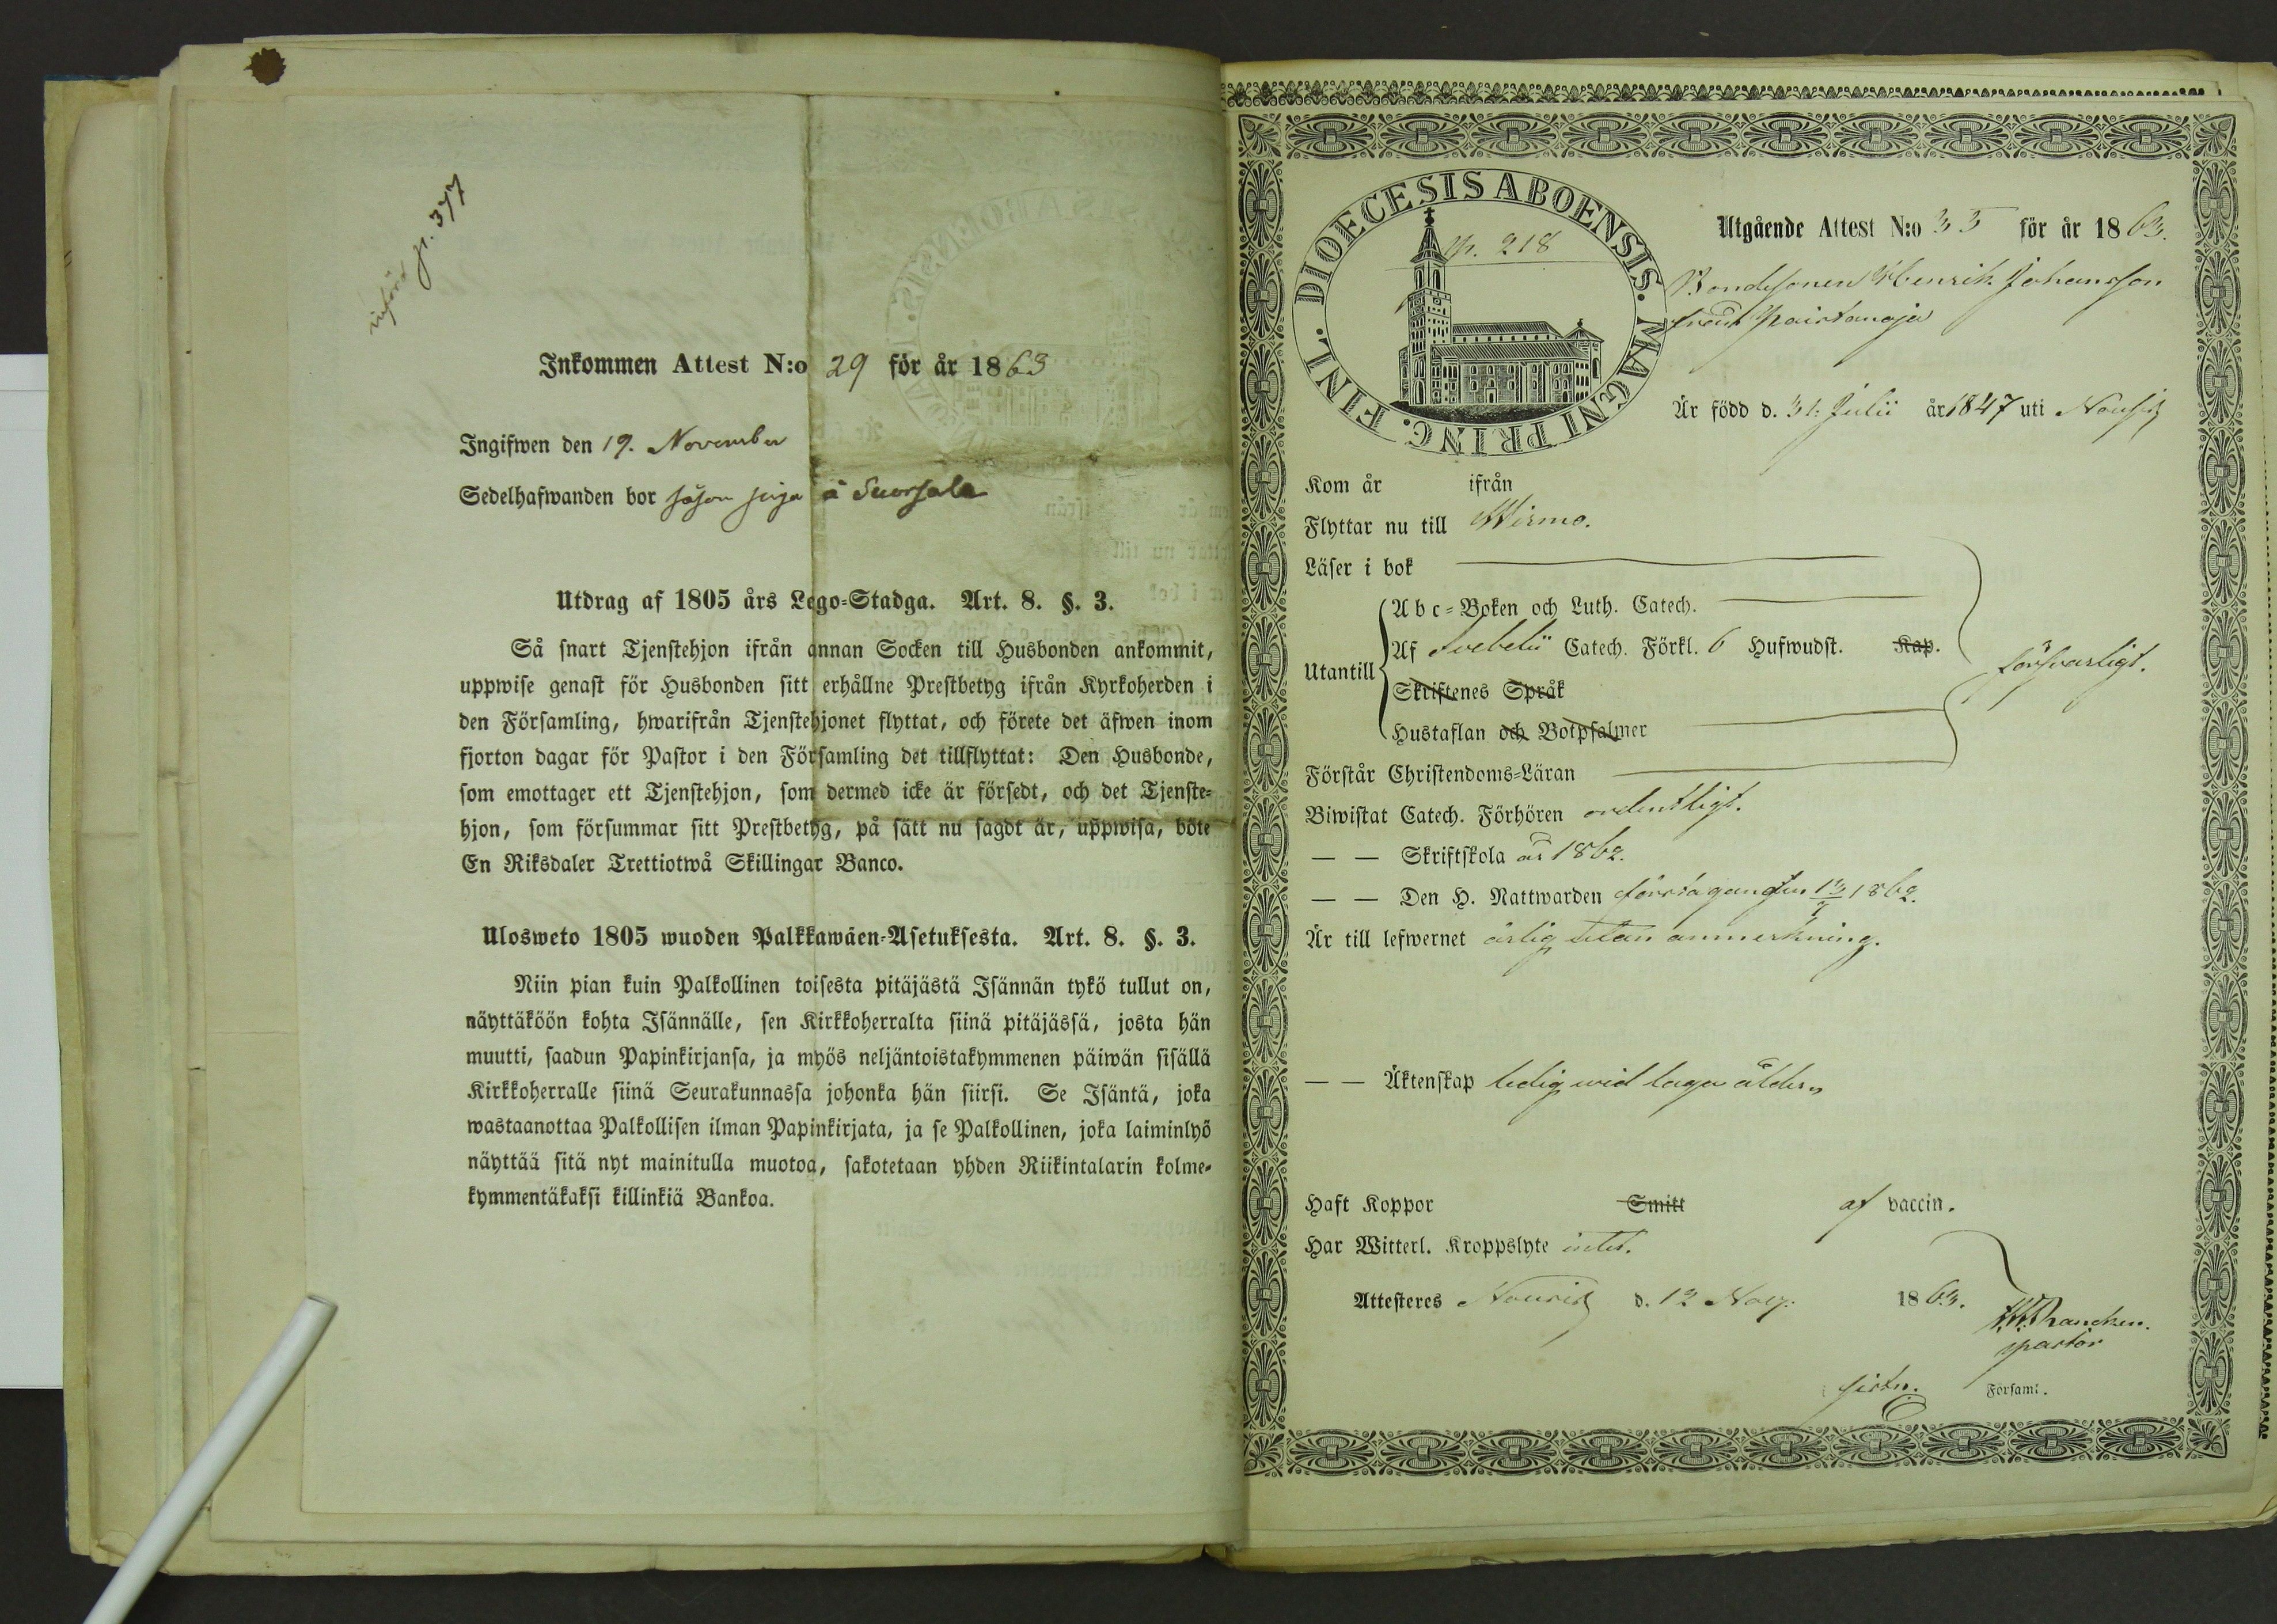 införd p. 377
Inkommen Attest N:o 29 för år 1863
Ingifwen den 19. November
Sedelhafwanden bor såsom piga å Suorsala
Utdrag af 1805 års Lego=Stadga. Art. 8. §. 3.
Så snart Tjenstehjon ifrån annan Socken till Husbonden ankommit,
uppwise genast för Husbonden sitt erhållne Prestbetyg ifrån Kyrkoherden i
den Församling, hwarifrån Tjenstehjonet flyttat, och förete det äfwen inom
fjorton dagar för Pastor i den Församling det tillflyttat: Den Husbonde,
som emottager ett Tjenstehjon, som dermed icke är försedt, och det Tjenste=
hjon, som försummar sitt Prestbetyg, på sätt nu sagdt är, uppwisa, böte
En Riksdaler Trettiotwå Skillingar Banco.
Ulosweto 1805 wuoden Palkkawäen=Asetuksesta. Art. 8. §. 3.
Niin pian kuin Palkollinen toisesta pitäjästä Isännän tykö tullut on,
näyttäköön kohta Isännälle, sen Kirkkoherralta siinä pitäjässä, josta hän
muutti, saadun Papinkirjansa, ja myös neljäntoistakymmenen päiwän sisällä
Kirkkoherralle siinä Seurakunnassa johonka hän siirsi. Se Isäntä, joka
wastaanottaa Palkollisen ilman Papinkirjata, ja se Palkollinen, joka laiminlyö
näyttää sitä nyt mainitulla muotoa, sakotetaan yhden Riikintalarin kolme=
kymmentäkaksi killinkiä Bankoa.
DIOECESIS ABOENSIS. MAGNI PRINC. FINL.
p. 218
Utgående Attest N:o 35 för år 1863.
Bondesonen Henrik Johansson
från Paistanoja
Är född d. 31. Julii år 1847 uti Nousis
Kom år ifrån
Flyttar nu till Wirmo.
Läser i bok
Utantill
Abc=Boken och Luth. Catech.
Af Svebelii Catech. Förkl. 6 Hufwudst. Kap.
Skriftenes Språk
försvarligt.
Hustaflan och Botpsalmer
Förstår Christendoms=Läran
Biwistat Catech. Förhören ordentligt.
— — Skriftskola år 1862.
— — Den H. Nattwarden första gången 13/7 1862.
Är till lefwernet ärlig utan anmerkning.
— — Äktenskap ledig wid laga ålder
Haft Koppor Smitt af vaccin.
Har Witterl. Kroppslyte intet.
Attesteres Nousis d. 12 Nov. 1863.
pastor
Församl.